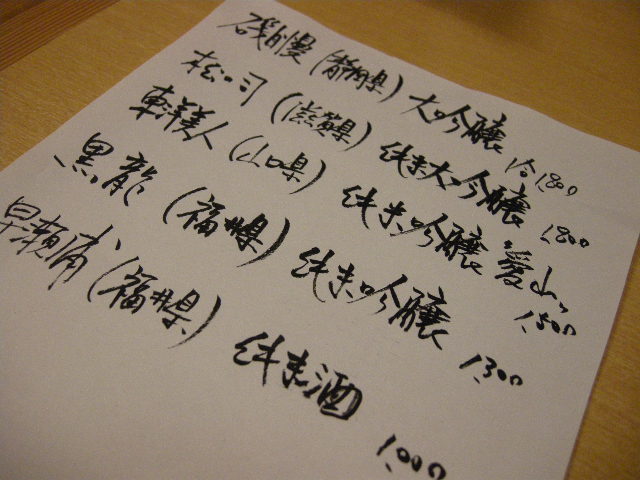 磯自慢(静岡県) 大吟醸 1,800
松の司(滋賀県) 純米大吟醸 1,800
東洋美人(山口県) 純米吟醸 愛山 1,500
黒龍(福井県) 純米吟醸 1,300
早瀬浦(福井県) 純米酒 1,000